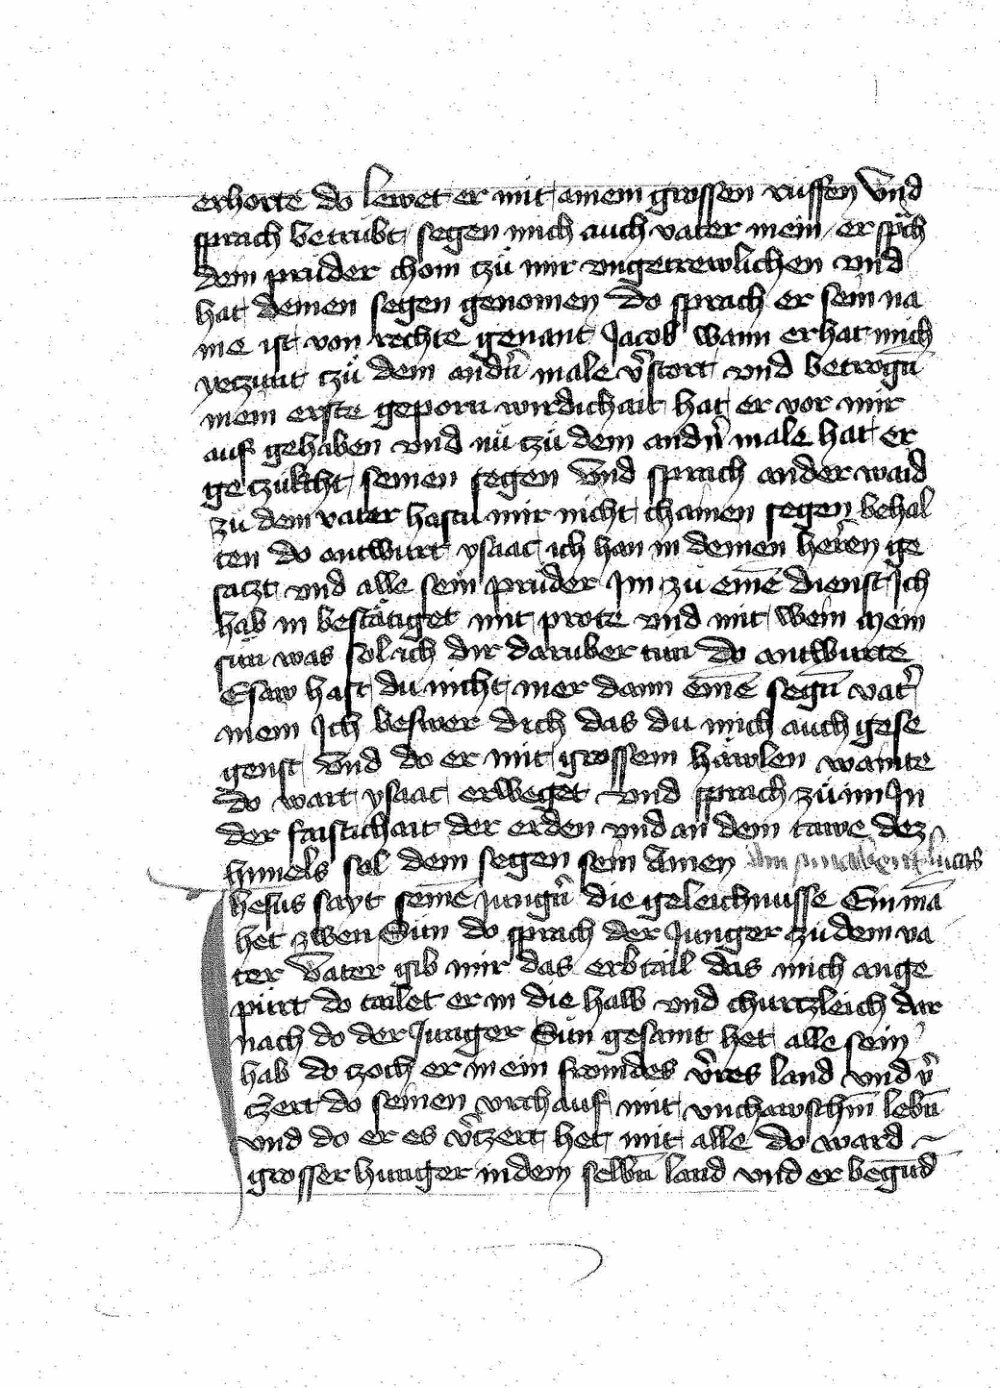 erhorte do lewet er mit ainem grossen rüffen Vnd
sprach betrubt segen mich auch vater mein er sp̄ch
dem prüder chom tzü mir vngetrewlichen vnd
hat deinen segen genomen do sprach er sein na
me ist von rechte genant Jacob wann er hat mich
yetzunt tzü dem and̄n male v̄stort vnd betroḡn
mein erste geporn wirdichait hat er vor mir
auf gehaben vnd nü tzü dem and̄n male hat er
getzükcht seinen segen Vnd sprach ander waid
zü dem vater hastu mir nicht chainen segen behal
ten do antwurt ysaac ich han in deinen heren ge
satzt vnd alle sein prüder Im zü eine᷇ dienst Ich
hab in bestätiget mit prote vnd mit wein mein
sun was sol ich dir daruber tun do antwurte
Esaw hast du nicht mer dann eine᷇ seḡn vat̄
mein Ich beswer dich das du mich auch gese
genst Vnd do er mit grossem häwlen wainte
do wart ysaac erweget vnd sprach zü im In
der faistichait der erden vnd an dem tawe dez
himels sol dein segen sein Amen lucas
Hesus sayt seine᷇ Junḡn die geleichnusse Ein ma᷇
het zwen Sün do sprach der Junger zü dem va
ter Vater gib mir das erbtail das mich ange
pürt do tailet er in die hab vnd churtzleich dar
nach do der Junger Sün gesamt het alle sein
hab do zoch er in ein fromdes v̄res land vnd v̄
czert do seinen vrch auf mit vnchawschm̄ leb̄n
vnd do er es v̄tzert het mit alle do ward
grosser hunger in dem selb̄n land vnd er begu᷇d